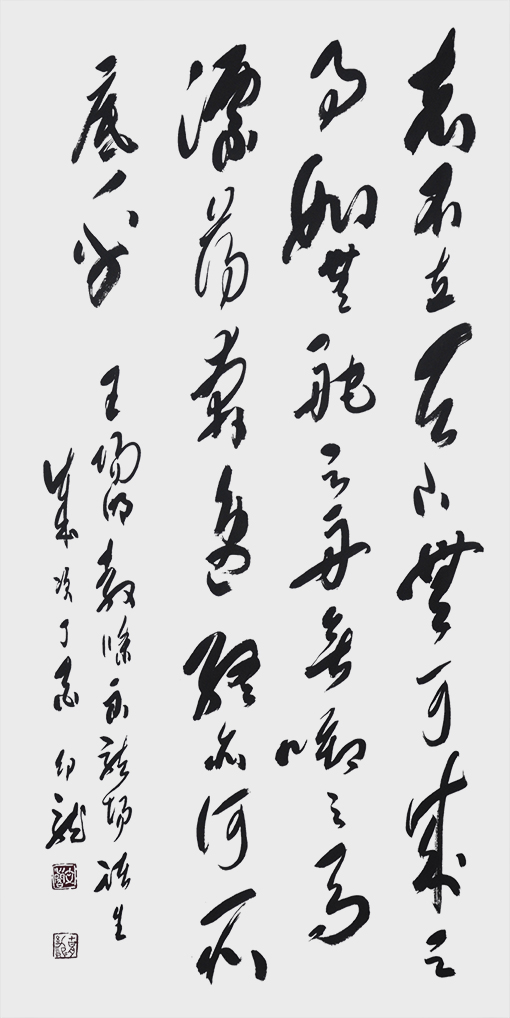 志不立天下無可成之
事如無舵之舟無啣之馬
漂蕩奔逸終亦何所
底乎
王陽明教條示龍場諸生
歲次丁酉 龍